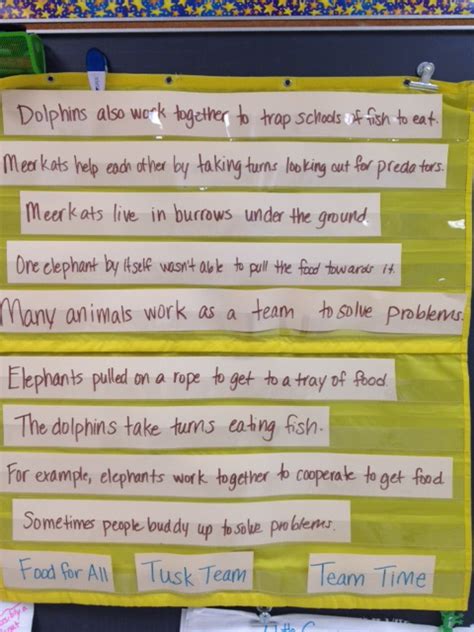 Dolphins also work together to trap schools of fish to eat.
Meerkats help each other by taking turns looking out for predators.
Meerkats live in burrows under the ground
One elephant by itself wasn't able to pull the food towards it.
Many animals work as a team to solve problems.
Elephants pulled on a rope to get to a tray of food.
The dolphins take turns eating fish.
For example, elephants work together to cooperate to get food
Sometimes people buddy up to solve problems.
Food for All Tusk Team Team Time